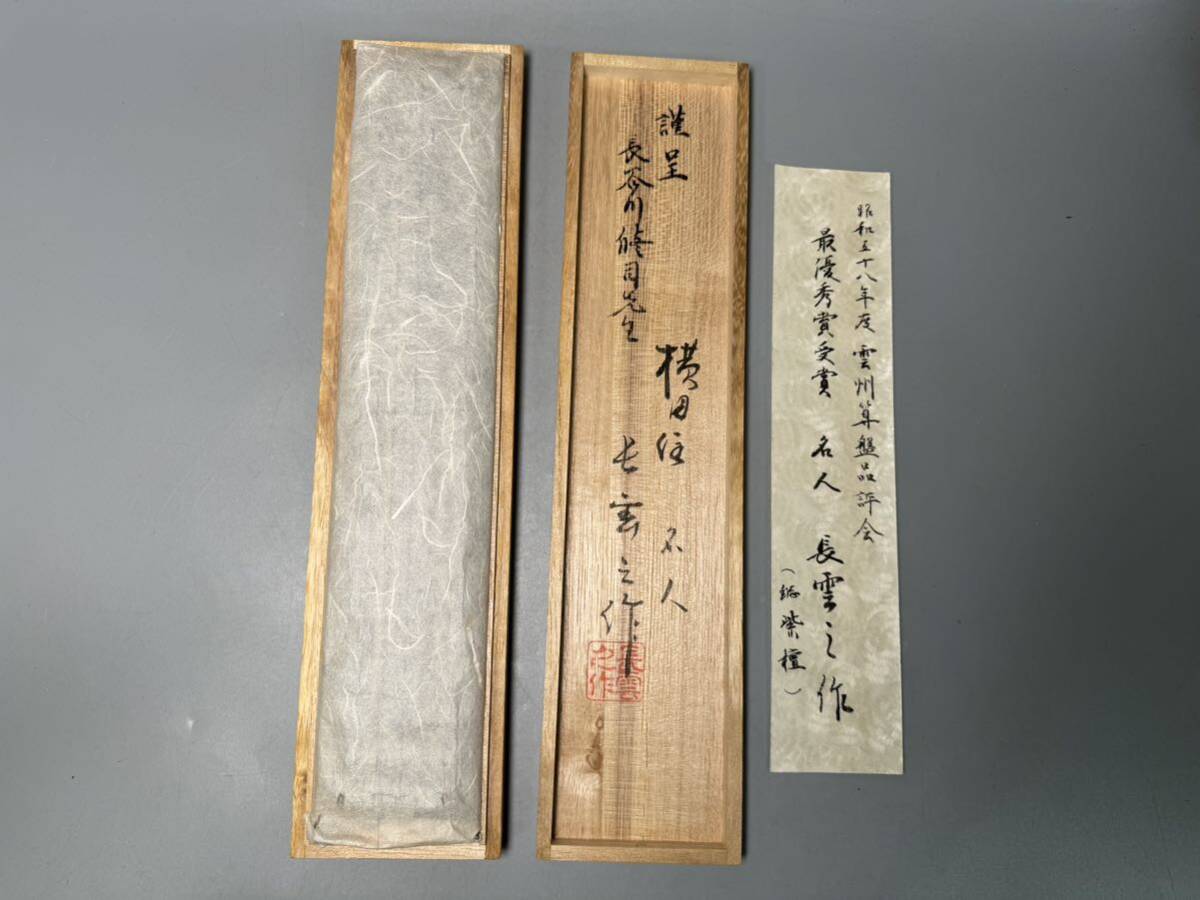 謹呈
長谷川修司先生
横田住 名人
長雲之作
長雲
之作
昭和五十八年度 雲州算盤品評会
最優秀賞受賞 名人 長雲之作
(総紫檀)